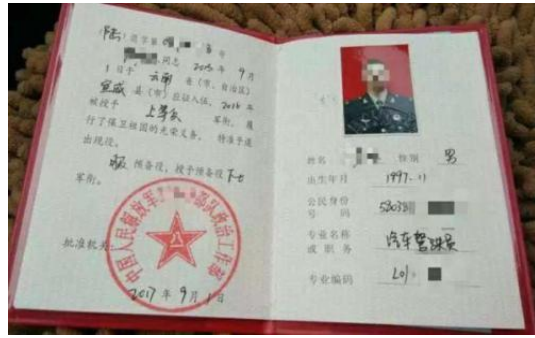 退字第 号
同志 2015 年 9 月
1 日于 云南 省(市、自治区)
宣威 县(市)应征入伍, 2016 年
被授予 上等兵 军衔。履
行了保卫祖国的光荣义务。特准予退
出现役。
服 预备役,授予预备役 下士
军衔。
批准机关:
中国人民解放军 部队政治工作部
2017 年 9 月 1 日
姓名 性别 男
出生年月 1997.11
公民身份
号 码
专业名称 汽车驾驶员
或 职 务
专业编码